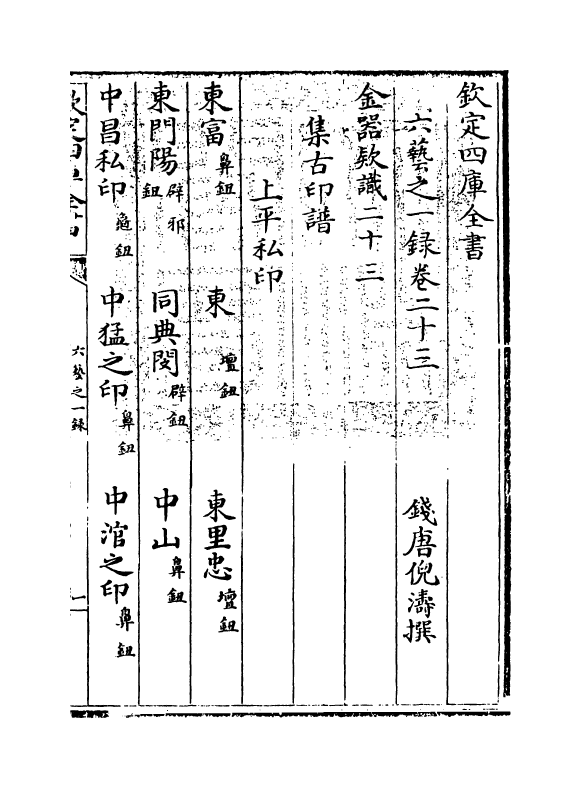 欽定四庫全書
六藝之一録卷二十三
錢唐倪濤撰
金器款識二十三
集古印譜
上平私印
東富鼻鈕 東壇鈕 東里忠壇鈕
東門陽辟邪鈕 同典閔辟鈕 中山鼻鈕
中昌私印龜鈕 中猛之印鼻鈕 中涫之印鼻鈕
欽定四庫全書
六藝之一録
一